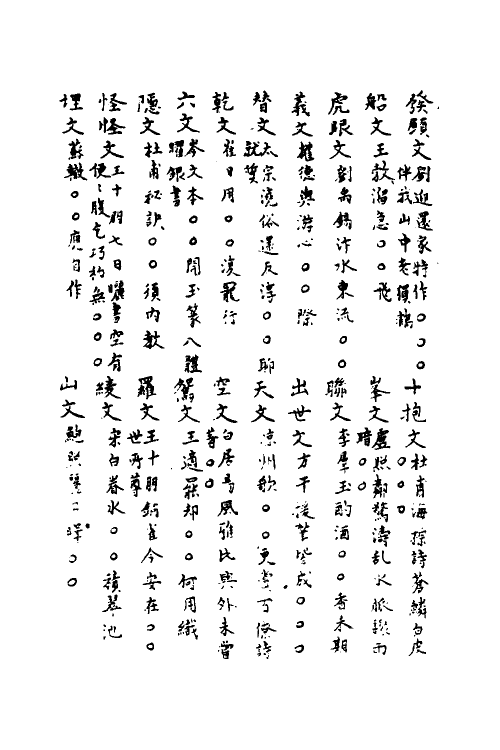 發願文劉迎還家特作○○○伴我山中老猿鶴
船文王敖溜急○○飛
虎眼文劉禹錫汴水東流○○
義文權德輿游心○○際
替文太宗澆俗還反淳○○聊就質
乾文崔日用○○復羆行
六文岑文本○○開玉篆八體曜銀書
隱文杜甫秘訣○○須內教
怪怪文王十朋七日曬書空有便便腹乞巧於無○○○
埋文蘇轍○○應自作
十抱文杜甫海棕詩蒼鱗白皮○○○
峯文盧照鄰驚濤亂水脈驟雨暗○○
聯文李羣玉酌酒○○香未期
出世文方干援筆皆成○○○
天文涼州歌○○更賞百僚詩
空文白居易風雅比興外未嘗著○○
鴛文王適羅却○○何用織
羅文王十朋銅雀今安在○○世所尊
綾文宋白春水○○積翠池
山文鮑照○○